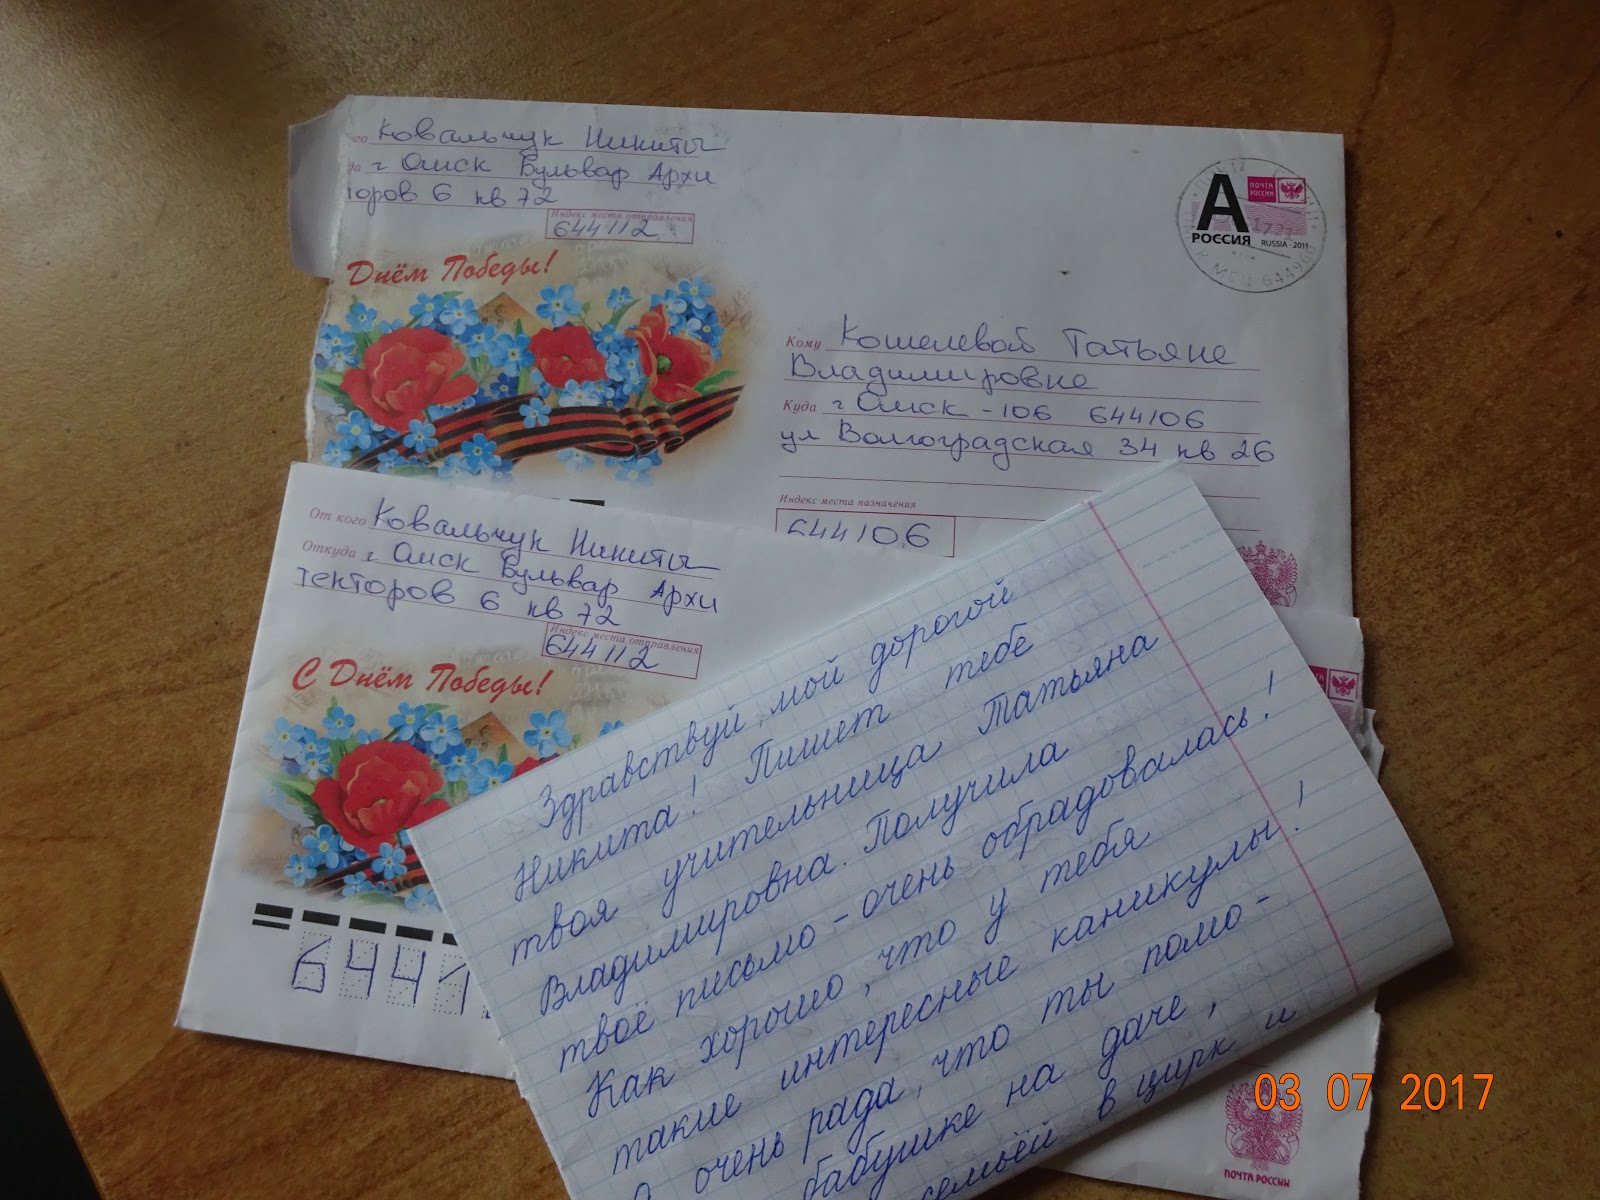 Ковальчук Никиты
г Омск Бульвар Архи
торов 6 кв 72
Индекс места отправления
644112
Днём Победы!
А
ПОЧТА РОССИИ
РОССИЯ
RUSSIA · 2011
Кому Кошелевой Татьяне
Владимировне
Куда г Омск - 106 644106
ул Волгоградская 34 кв 26
Индекс места назначения
644106
От кого Ковальчук Никиты
Откуда г Омск Бульвар Архи
текторов 6 кв 72
Индекс места отправления
644112
С Днём Победы!
6441
Здравствуй, мой дорогой
Никита! Пишет тебе
твоя учительница Татьяна
Владимировна. Получила
твоё письмо - очень обрадовалась!
Как хорошо, что у тебя
такие интересные каникулы!
Я очень рада, что ты помо-
бабушке на даче,
семьёй в цирк и
03 07 2017
ПОЧТА РОССИИ